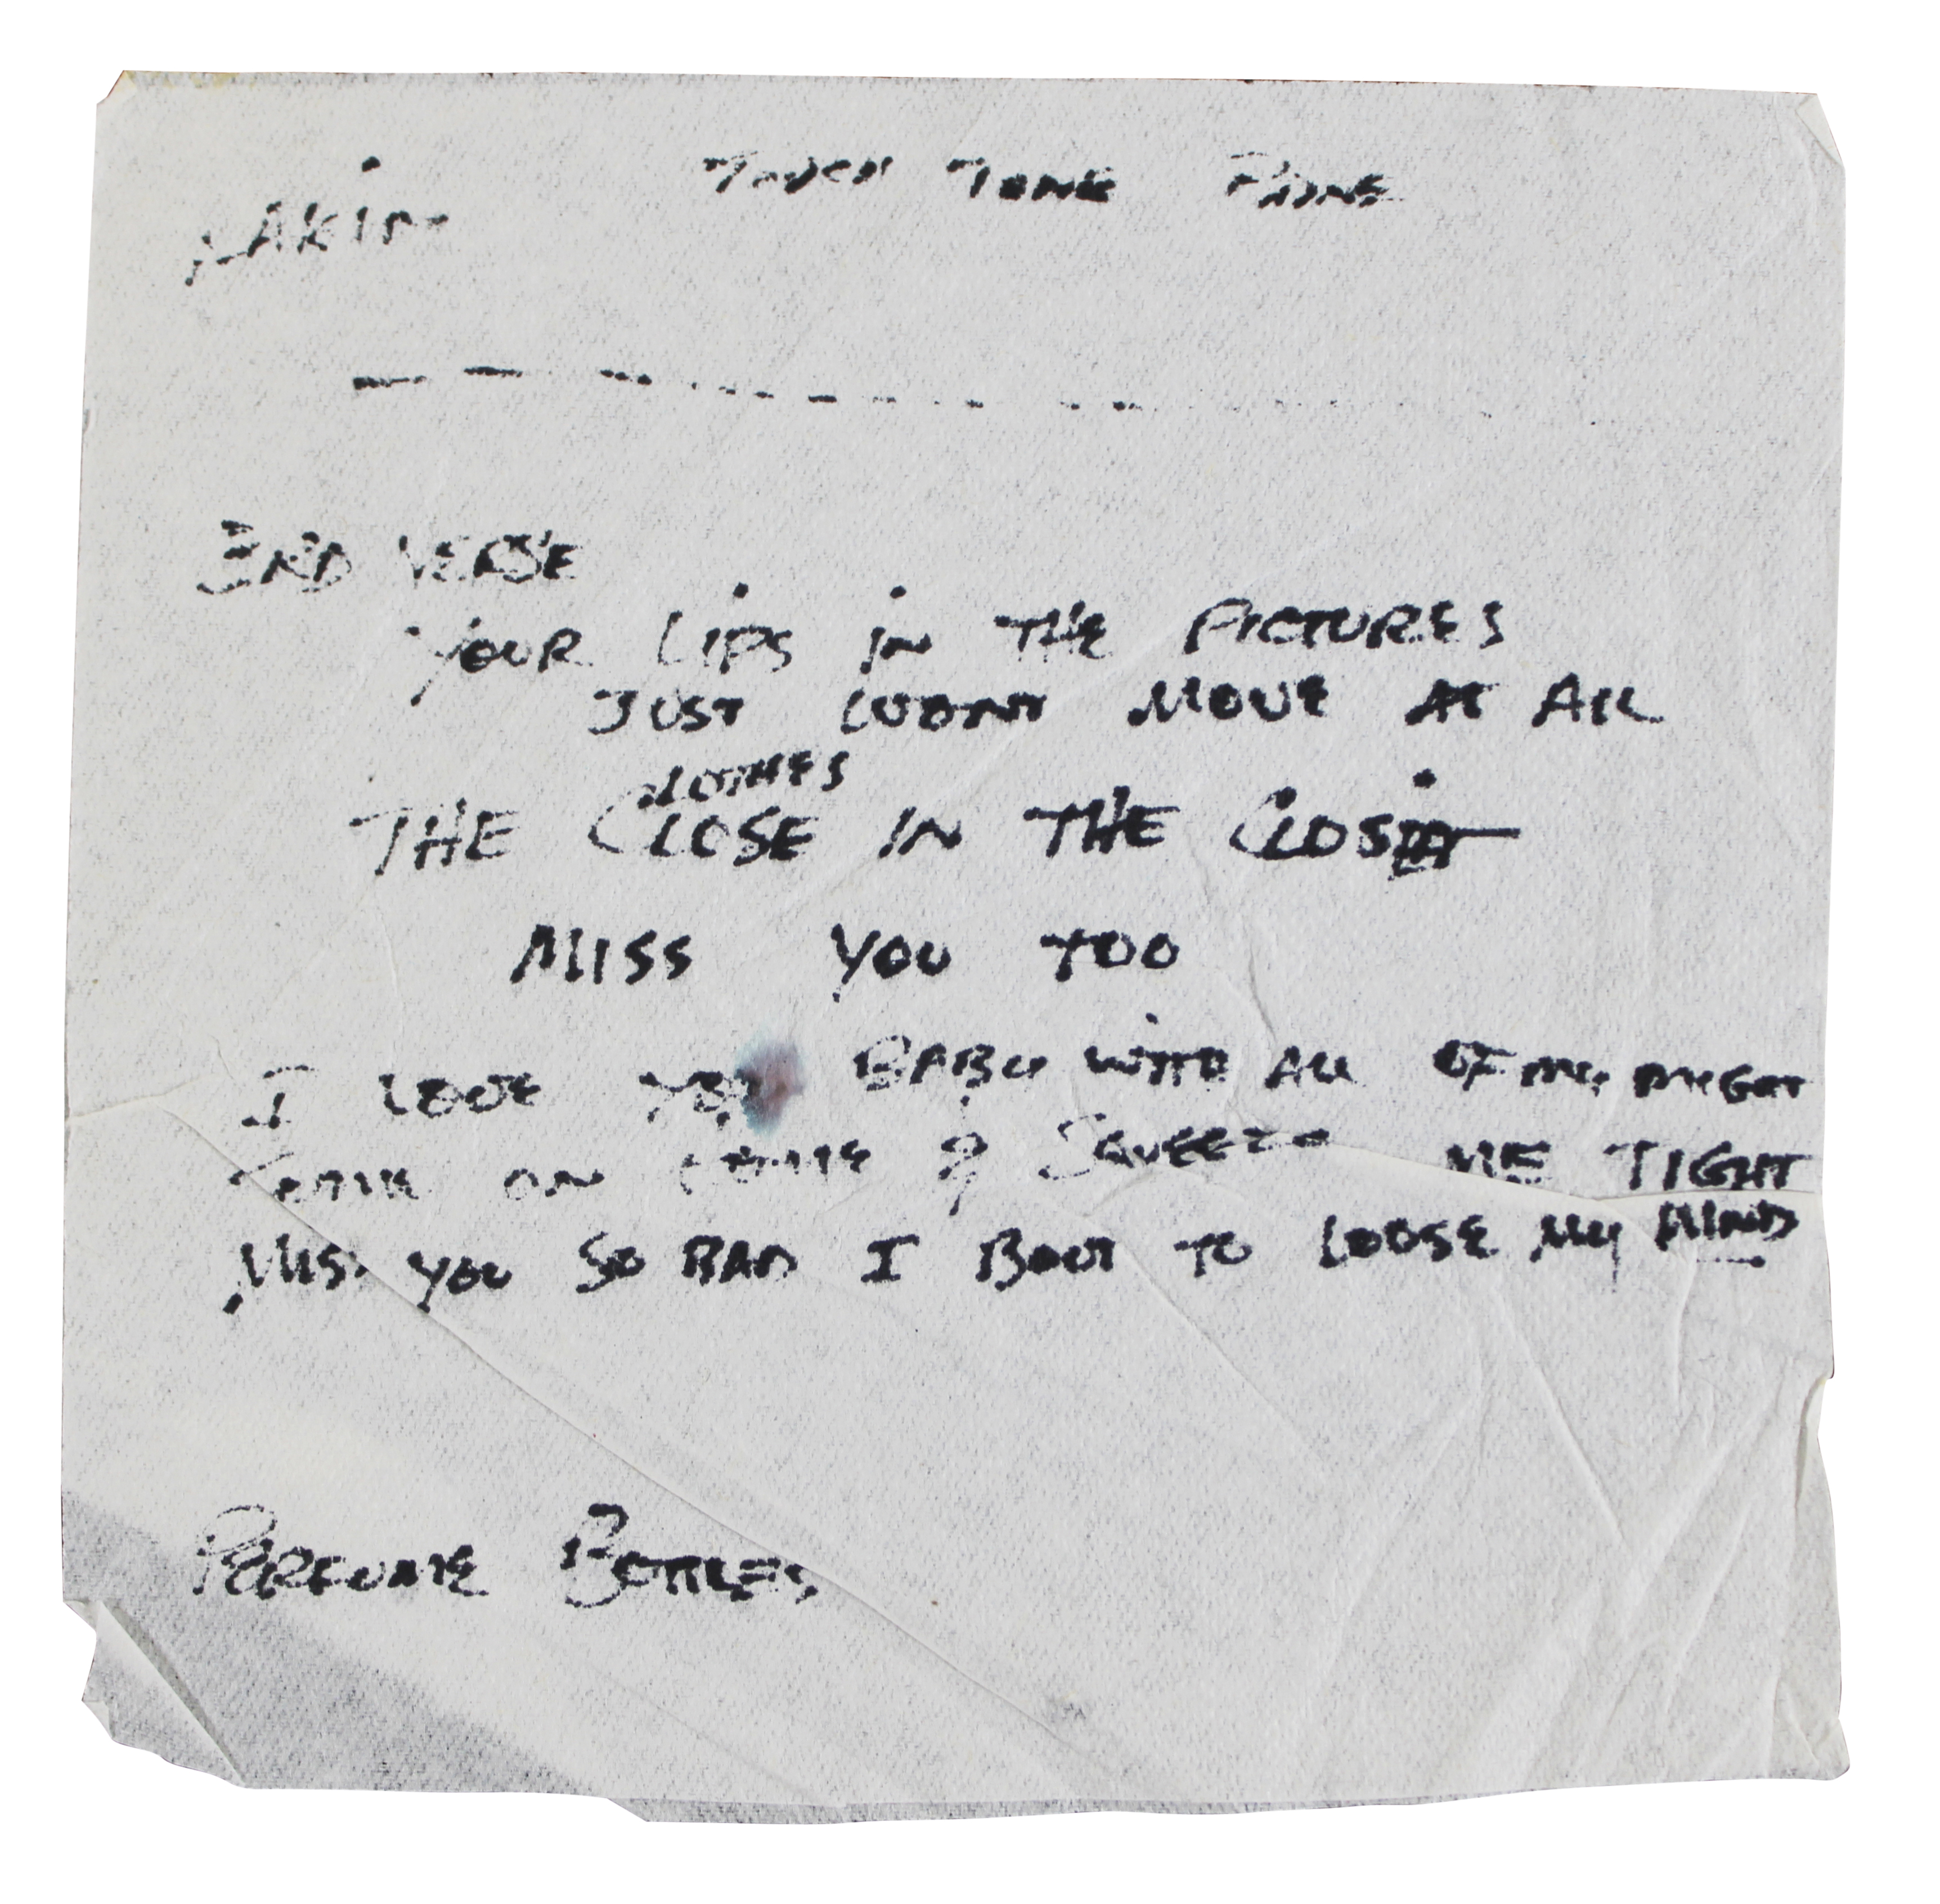 TOUCH TONE PHONE
3RD VERSE
YOUR LIPS IN THE PICTURES
JUST WONT MOVE AT ALL
CLOTHES
THE CLOSE IN THE CLOSIT
MISS YOU TOO
I LOVE YOU BABY WITH ALL OF MY MIGHT
ON HOME & SQUEEZE ME TIGHT
MISS YOU SO BAD I BOUT TO LOOSE MY MIND
PERFUME BOTTLES